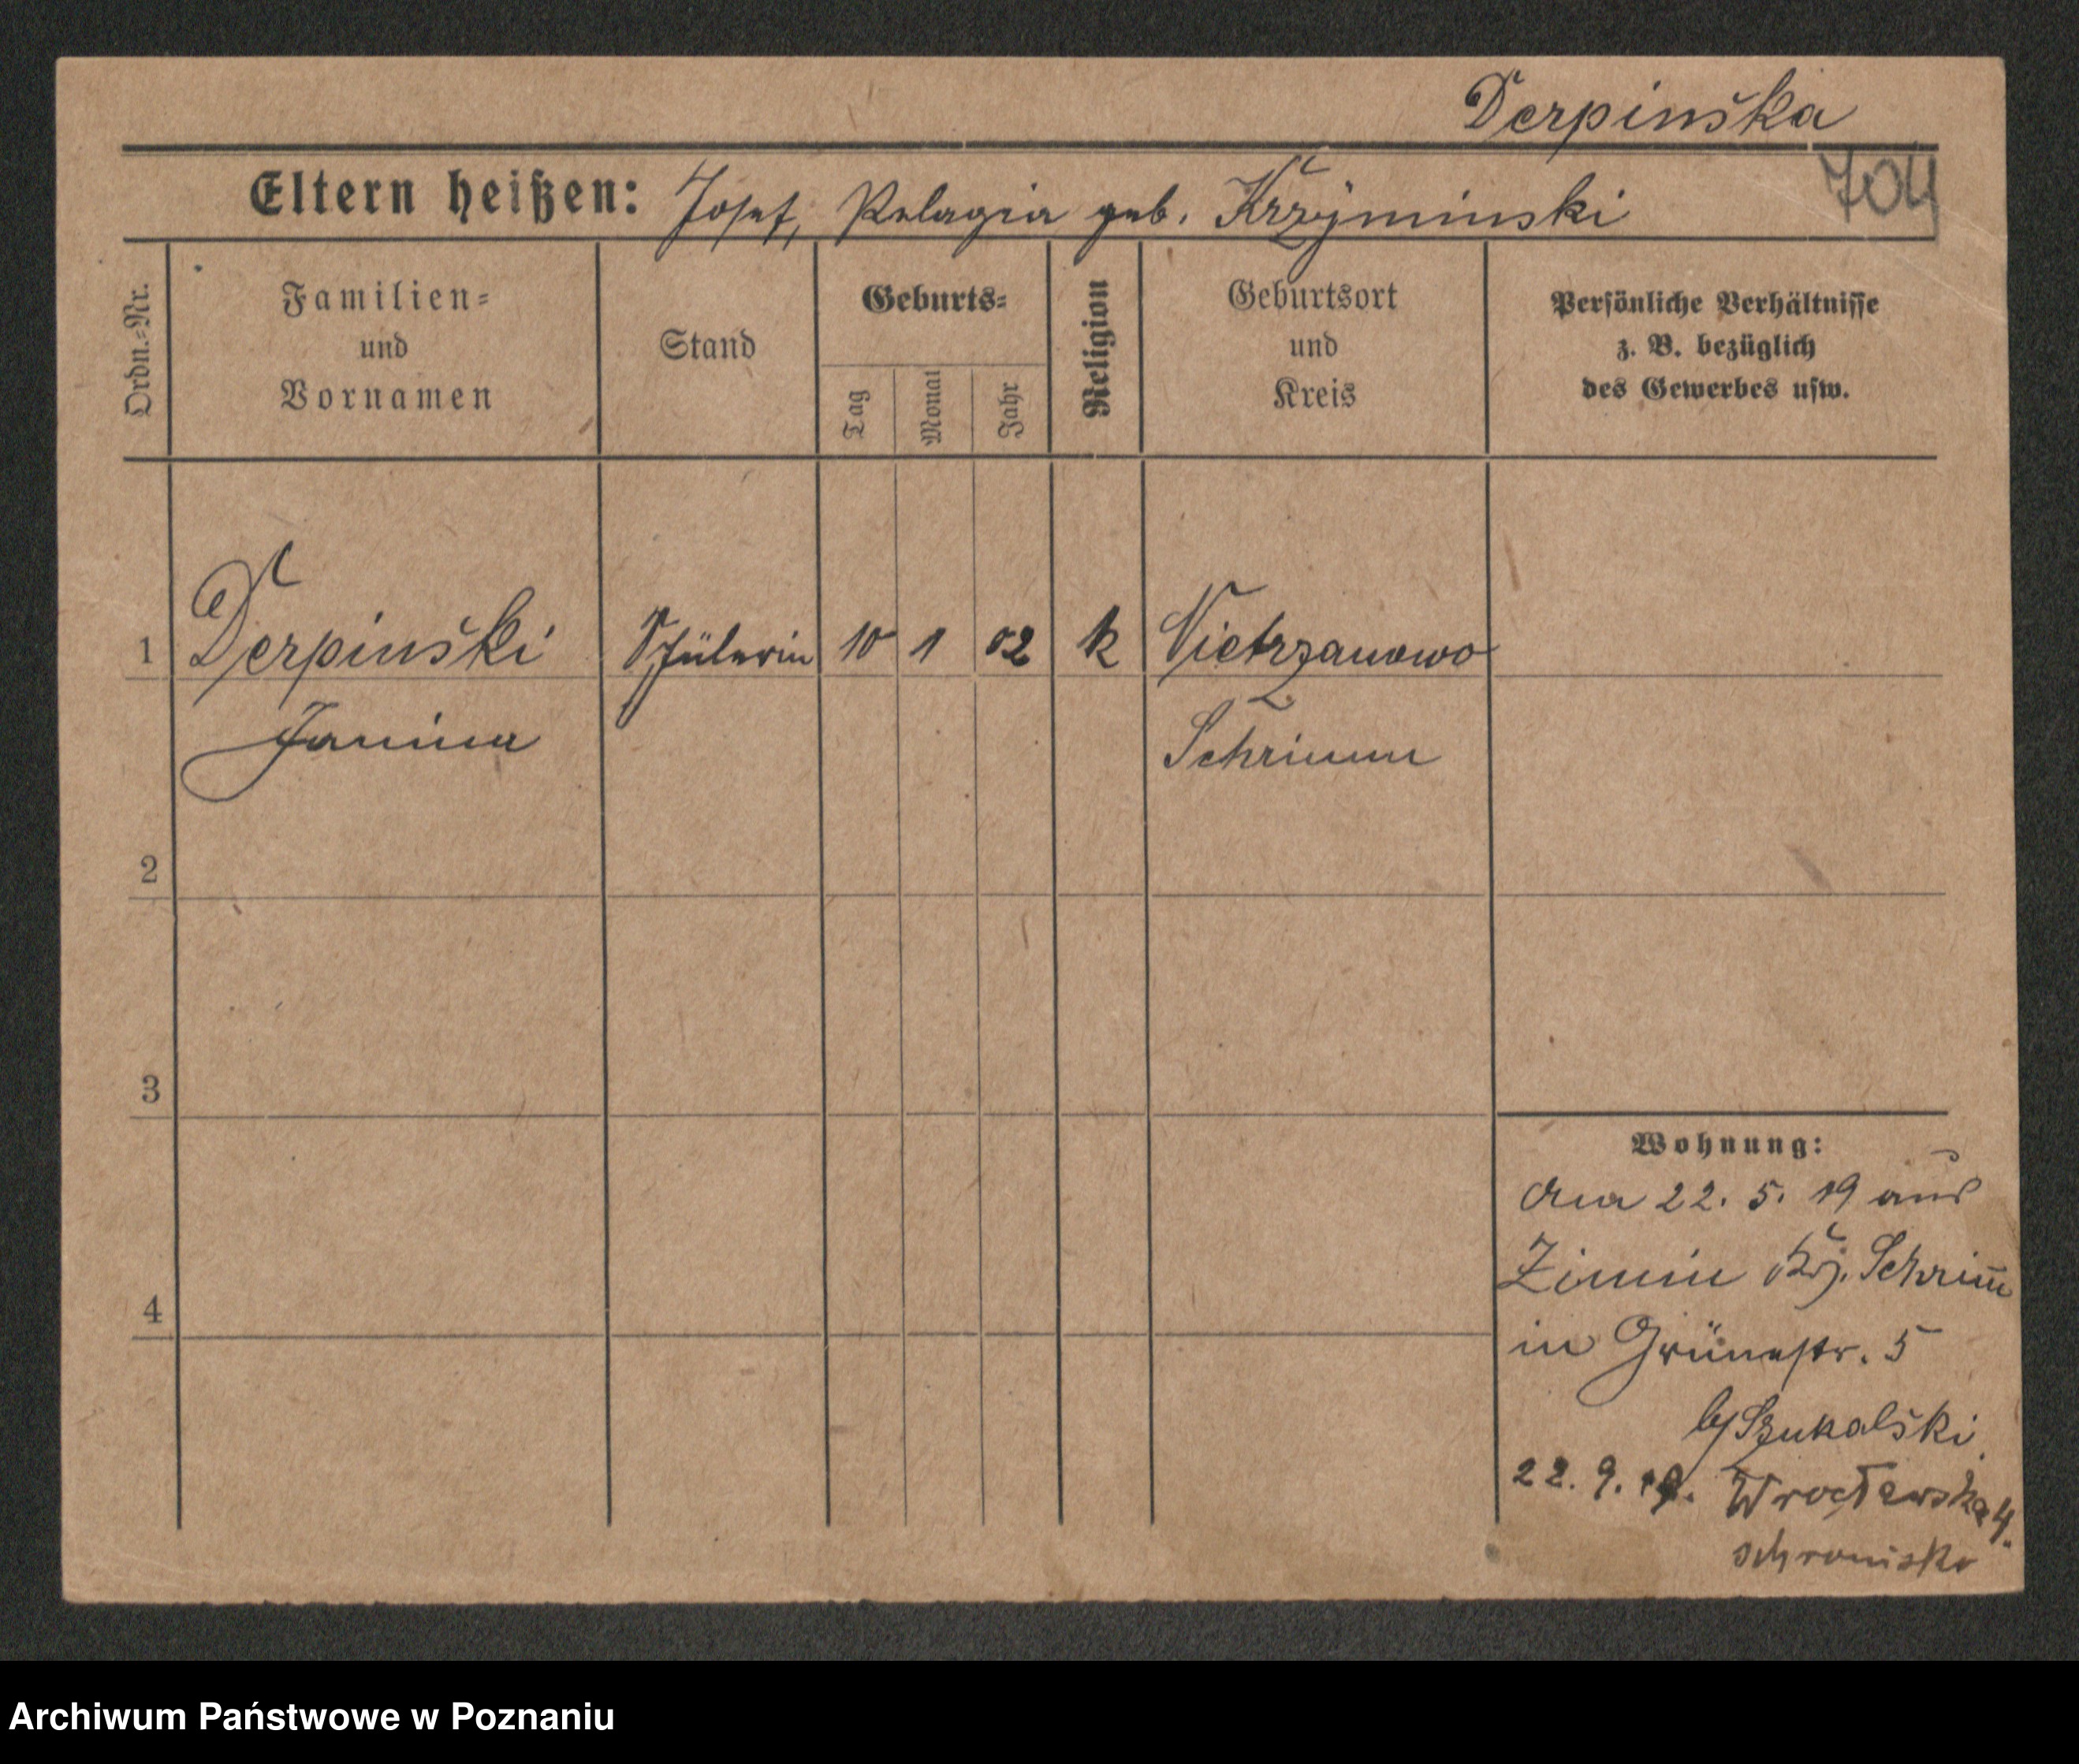 Derpinška
Eltern heißen: Josef, Pelagia geb. Krzyminski
704
Ordn.=Nr.
Familien=
und
Vornamen
Stand
Geburts=
Tag
Monat
Jahr
Religion
Geburtsort
und
Kreis
Persönliche Verhältnisse
z. B. bezüglich
des Gewerbes usw.
1 Derpinški Schülerin 10 1 02 k Nietrzanowo
Janina Schrimm
2
3
4
Wohnung:
22. 5. 19 aus
Zimin Krs. Schrim̄
in Grünestr. 5
b/ Szukalški
22. 9. 19. Wrocławska 4.
schronisko
Archiwum Państwowe w Poznaniu